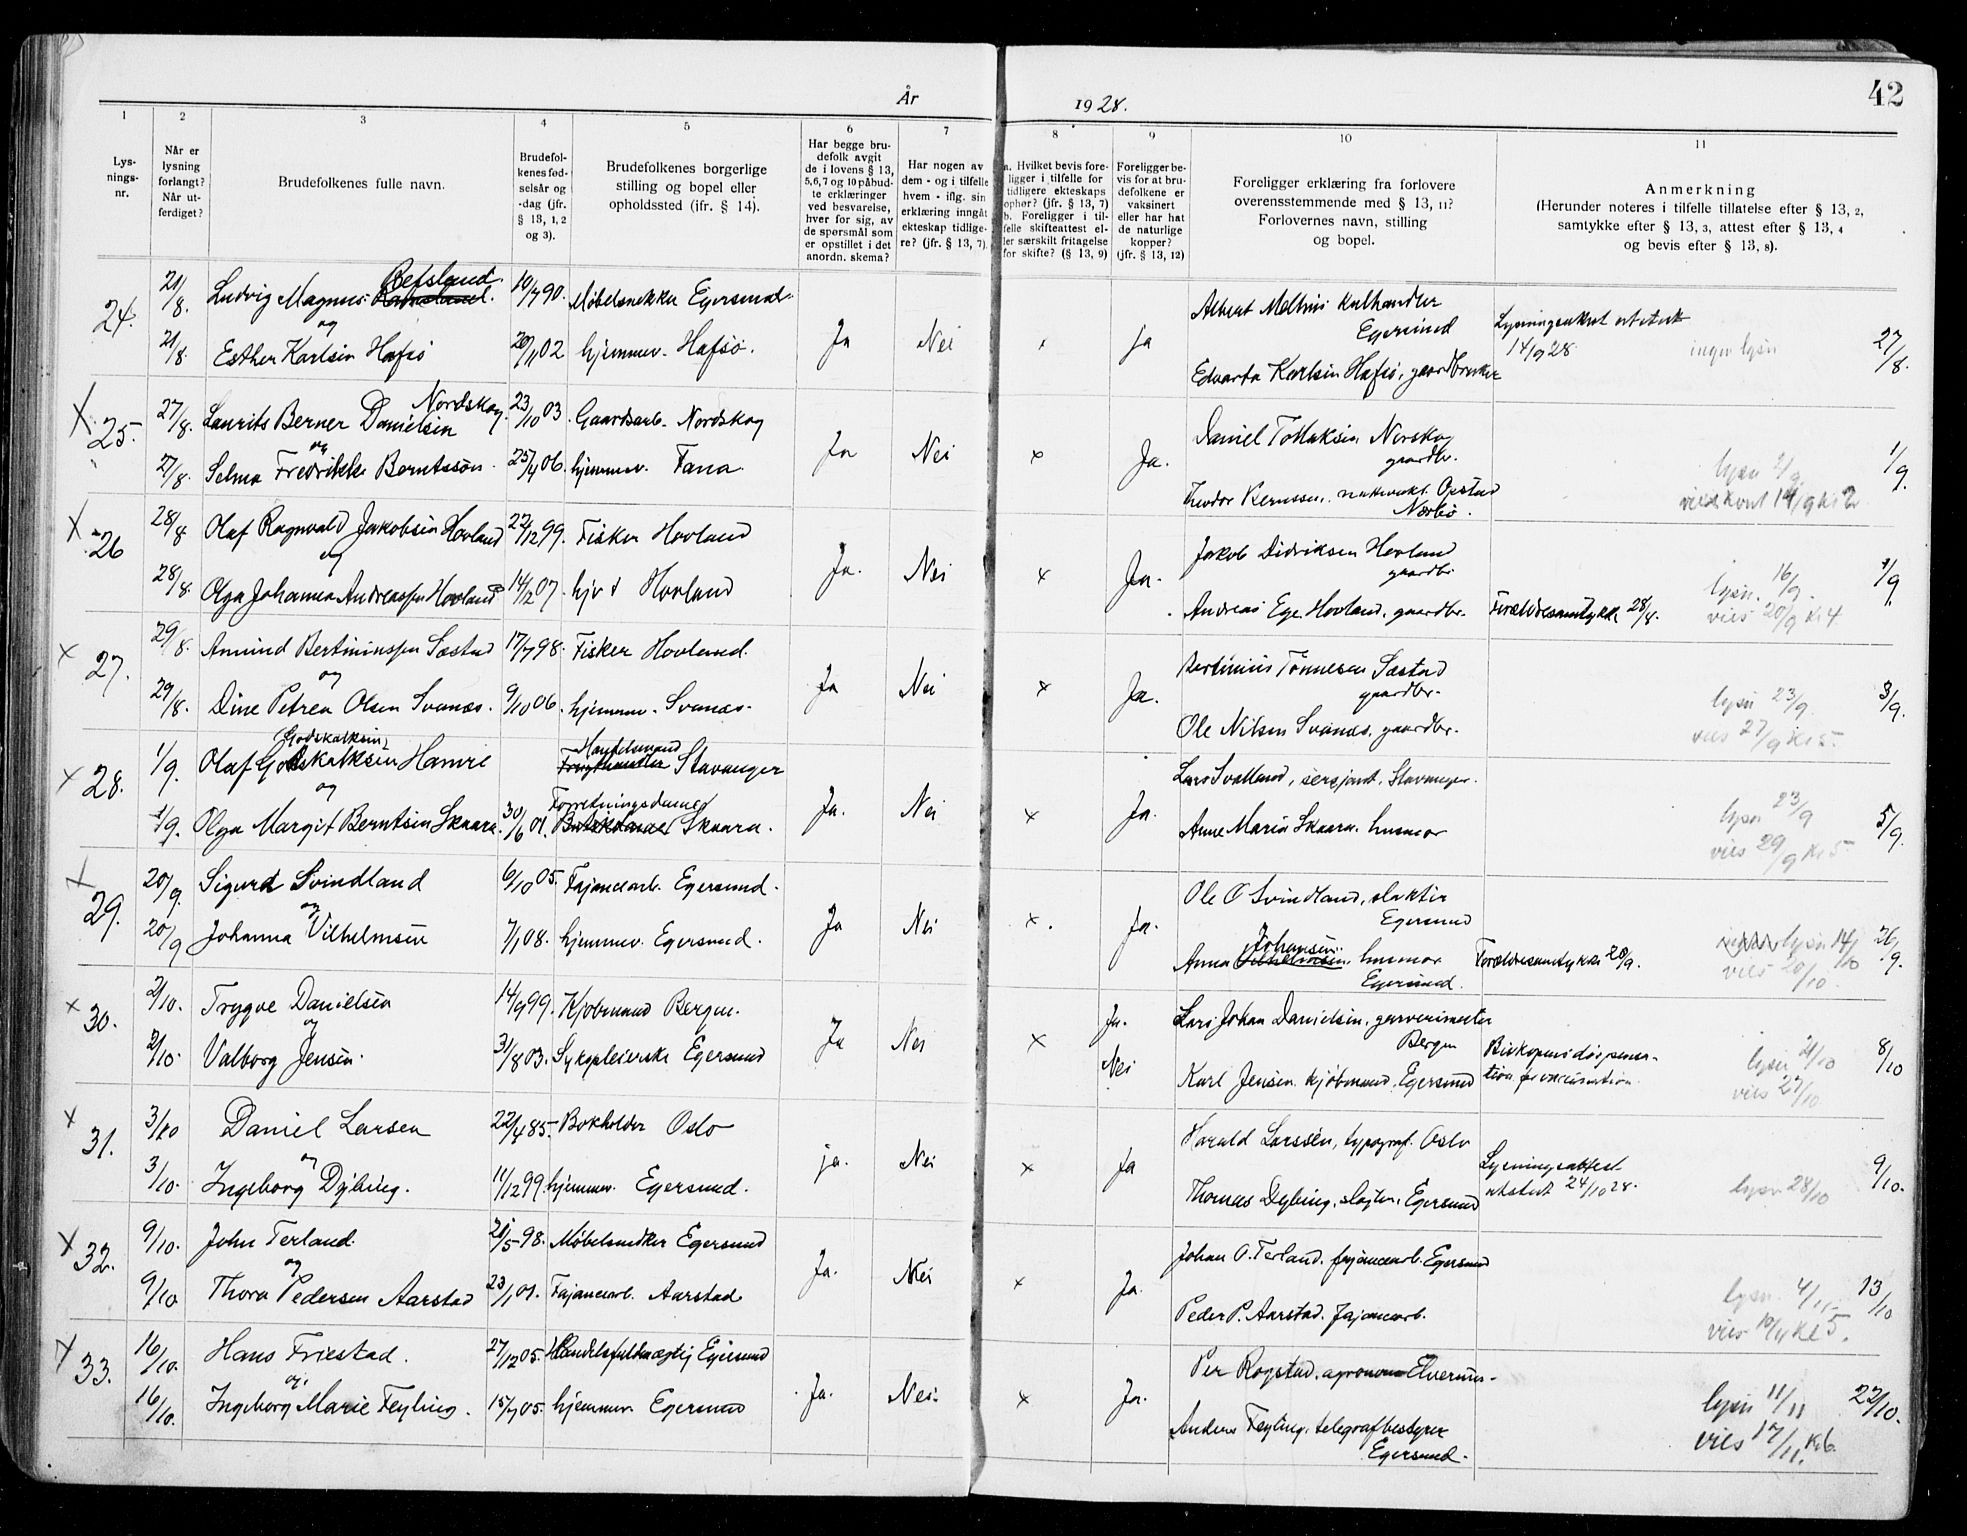 42
År 1928.
1 2 3 4 5 6 7 8 9 10 11
Lysnings-nr.
Når er lysning forlangt? Når utferdiget?
Brudefolkenes fulle navn.
Brudefolkenes fødselsår og -dag (jfr. § 13, 1, 2 og 3).
Brudefolkenes borgerlige stilling og bopel eller opholdssted (ifr. § 14).
Har begge brudefolk avgit de i lovens § 13, 5, 6, 7 og 10 påbudte erklæringer ved besvarelse, hver for sig, av de spørsmål som er opstillet i det anordn. skema?
Har nogen av dem - og i tilfelle hvem - iflg. sin erklæring inngått ekteskap tidligere? (jfr. § 13, 7).
a. Hvilket bevis foreligger i tilfelle for tidligere ekteskaps ophør? (jfr. § 13, 7) b. Foreligger i tilfelle skifteattest eller særskilt fritagelse for skifte? (§ 13, 9)
Foreligger bevis for at brudefolkene er vaksinert eller har hat de naturlige kopper? (jfr. § 13, 12)
Foreligger erklæring fra forlovere overensstemmende med § 13, 11? Forlovernes navn, stilling og bopel.
Anmerkning (Herunder noteres i tilfelle tillatelse efter § 13, 2, samtykke efter § 13, 3, attest efter § 13, 4 og bevis efter § 13, 8).
24. 21/8. Ludvig Magnus Befsland. 10/7 90. Møbelsnekker Egersund. Albert Meltvis kulhandler Egersund
og
21/8. Esther Karlsen Hafsø 20/11 02 hjemmev. Hafsø. Ja Nei x ja Edvarta Karlsen Hafsø, gaardbruker 14/9 28. ingen lysn 27/8.
X 25. 27/8. Laurits Berner Danielsen Nordskog. 23/10 03. Gaardsarb. Nordskog Daniel Tollaksen Norskog gaardbr.
og
27/8. Selma Fredrikke Berntssøn. 25/4 06. hjemmev. Tana. Ja Nei x Ja. Opstad Nærbø. lysn 2/9. 14/9 kl 2 1/9.
X 26 28/8 Olaf Ragnvald Jakobsen Hovland 22/12 99. Fisker Hovland Jakob Didriksen Hovland gaardbr.
og
28/8. Olga Johanna Andreassen Hovland 14/2 07. hjv. Hovland Ja. Nei x Ja. Andreas Ege Hovland, gaardbr. Forældresamtykke 28/8. lysn. 16/9. vies 20/9 kl 4 1/9.
x 27. 29/8. Amund Bertiniussen Sæstad 17/7 98. Fisker Hovland. Bertinius Tønnesen Sæstad gaardbr.
og
29/8. Dine Petrea Olsen Svanes. 9/10 06. hjemmev. Svanes. Ja Nei x Ja. Ole Nilsen Svanes, gaardbr. lysn 23/9. vies 27/9 kl 5. 3/9.
x 28. 1/9. Olaf Godskalksen Hamre Godskalksen Handelsmand Stavanger Lars Svalland, sersjant. Stavanger.
og
1/9. Olga Margit Berntsen Skaara. 30/6 01. Forretningsdame Skaara. Ja. Nei x Ja. Anne Maria Skaara. husmor lysn 23/9 vies 29/9 kl 5. 5/9.
x 29. 20/9. Sigurd Svindland 6/10 05. Fajancearb. Egersund. Ole O Svindland, slakter Egersund
og
20/9 Johanna Vilhelmsen 7/1 08. hjemmev. Egersund. Ja Nei x. Ja. Anna Johansen husmor Egersund. Forældresamtykke 20/9. lysn 14/10 vies 20/10. 26/9.
x 30. 2/10. Trygve Danielsen 14/9 99. Kjøbmand Bergen. Ja. Lars Johan Danielsen, garverimester Bergen
og
2/10. Valborg Jensen. 31/8 03. Sykepleierske Egersund Ja Nei x Nei Karl Jensen. kjøbmand. Egersund Biskopens dispensation for vaccination. lysn 21/10 vies 27/10. 8/10
x 31. 3/10 Daniel Larsen 22/4 85. Bokholder Oslo Harald Larssén, typograf. Oslo
og
3/10. Ingeborg Dybing. 11/12 99. hjemmev. Egersund. ja. Nei x Ja Thomas Dybing, slagter, Egersund Lysningsattest utstedt 24/10 28. lysn 28/10 9/10.
x 32. 9/10. John Terland. 20/5 98. Møbelsnekker Egersund Johan O. Terland. fajancearb. Egersund
og
9/10 Thora Pedersen Aarstad 23/1 01. Fajancearb. Aarstad Ja. Nei x Ja. Peder P. Aarstad. Fajancearb. lysn. 4/11. vies 10/11 kl 5. 13/10
x 33. 16/10. Hans Friestad. 27/12 05. Handelsfuldmægtig Egersund Per Rogstad. agronom Elverum.
og
16/10. Ingeborg Marie Feyling. 15/7 05. hjemmev Egersund Ja. Nei. x Ja. Anders Feyling. telegrafbestyrer Egersund. lysn 11/11 vies 17/11. kl 6. 22/10.